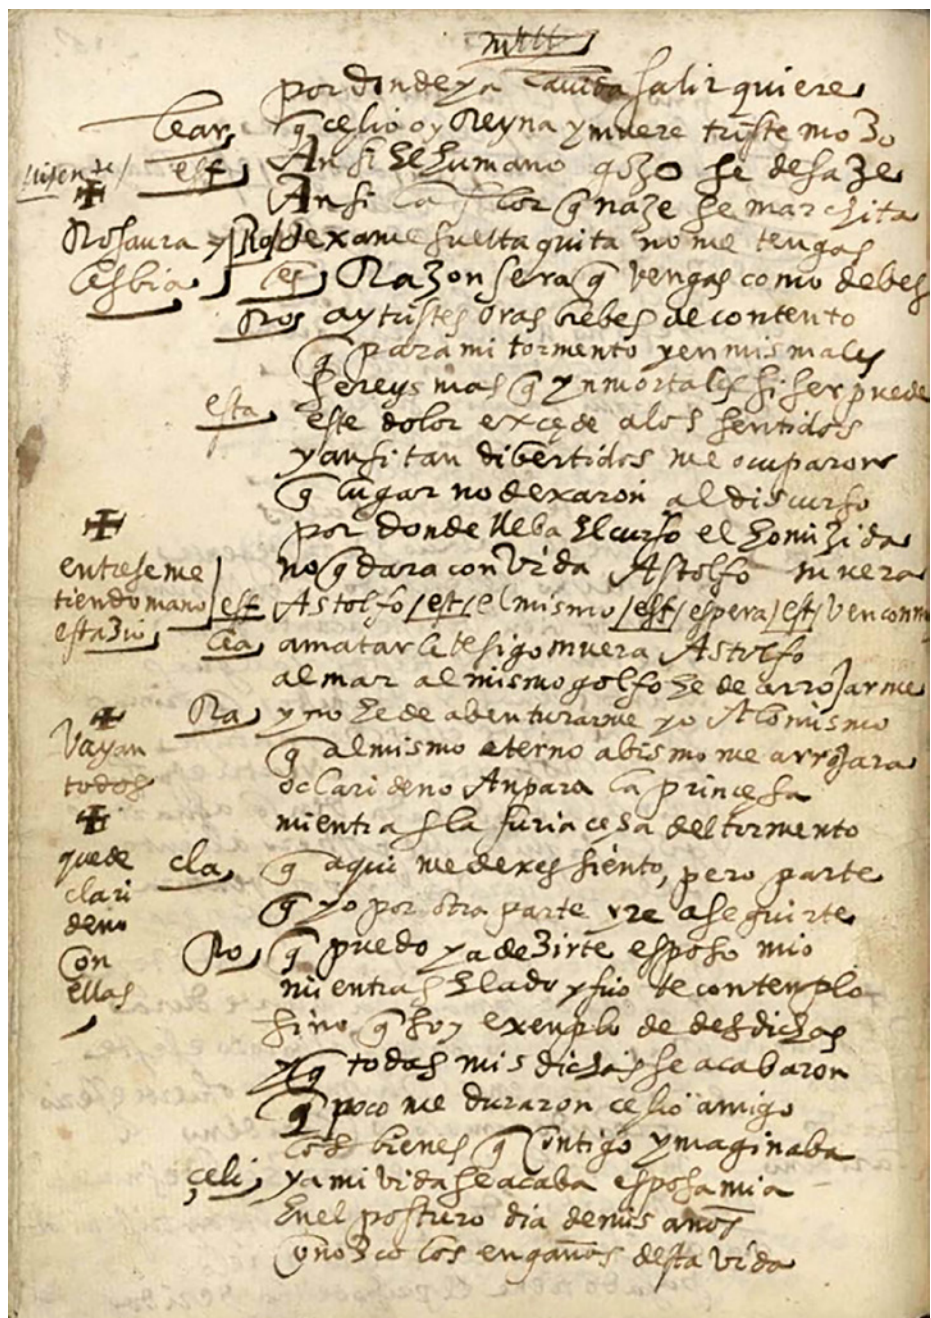 por donde ya la vida salir quiere
lear, q̃ celio oy Reyna y muere triste mozo
est, Ansi el humano gozo se desaze
Ansi la flor q̃ naze se marchita
Rosaura y lesbia Ro/ dexame suelta quita no me tengas
les, Razon sera q̃ vengas como debes
Ros ay tristes oras brebes de contento
q̃ para mi tormento y en mis males
sereys mas q̃ ynmortales si ser puede
esta este dolor exçede a los sentidos
y ansi tan dibertidos me ocuparon
q̃ lugar no dexaron al discurso
por donde lleba el curso el homizida
no q̃dara con vida Astolfo muera
entrese me
tiendo mano
estazio
est Astolfo /est/ el mismo /est/ espera /est/ ven conmi
lea, a matarle te sigo muera Astolfo
al mar al mismo golfo he de arrojarme
Ra, y no he de abenturarme yo A lo mismo
q̃ al mismo eterno abismo me arrojara
vayan
todos
o clarideno Anpara la princesa
mientras la furia cesa del tormento
cla, q̃ aqui me dexes siento, pero parte
q̃ yo por otra parte yre a seguirte
quede
clari
deno
con
ellas
Ro, q̃ puedo ya dezirte esposo mio
mientras elado y frio te contemplo
sino q̃ soy exenplo de desdichas
y q̃ todas mis dichas se acabaron
q̃ poco me duraron celio amigo
los bienes q̃ contigo ymaginaba
çeli, ya mi vida se acaba esposa mia
En el posturo dia de mis años
conozco los engaños desta vida